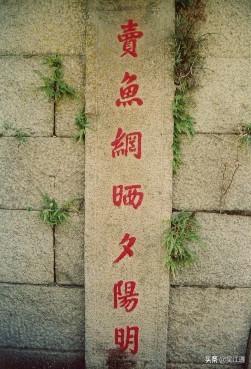 賣魚網晒夕陽明
头条@吴江通